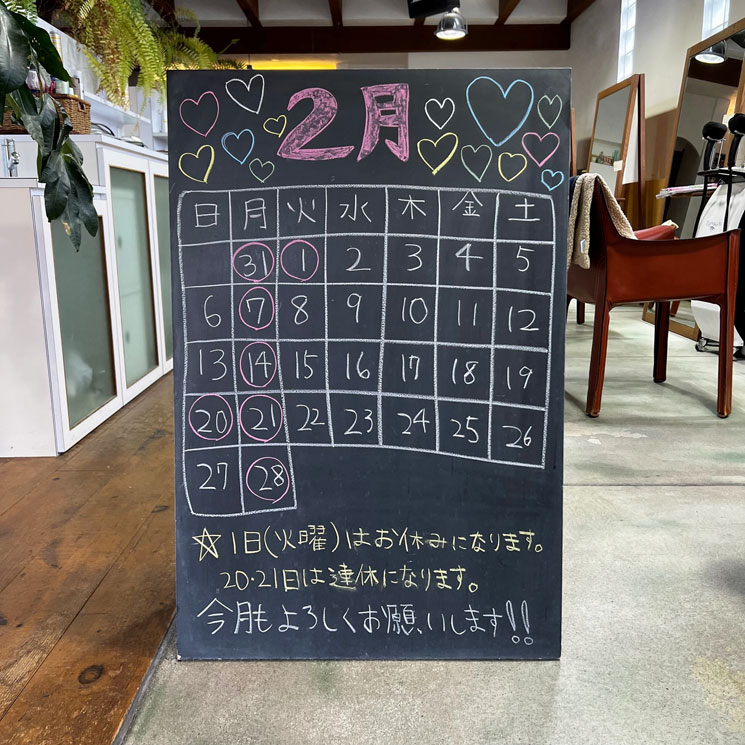 2月
日 月 火 水 木 金 土
31 1 2 3 4 5
6 7 8 9 10 11 12
13 14 15 16 17 18 19
20 21 22 23 24 25 26
27 28
☆1日(火曜)はお休みになります。
20・21日は連休になります。
今月もよろしくお願いします!!